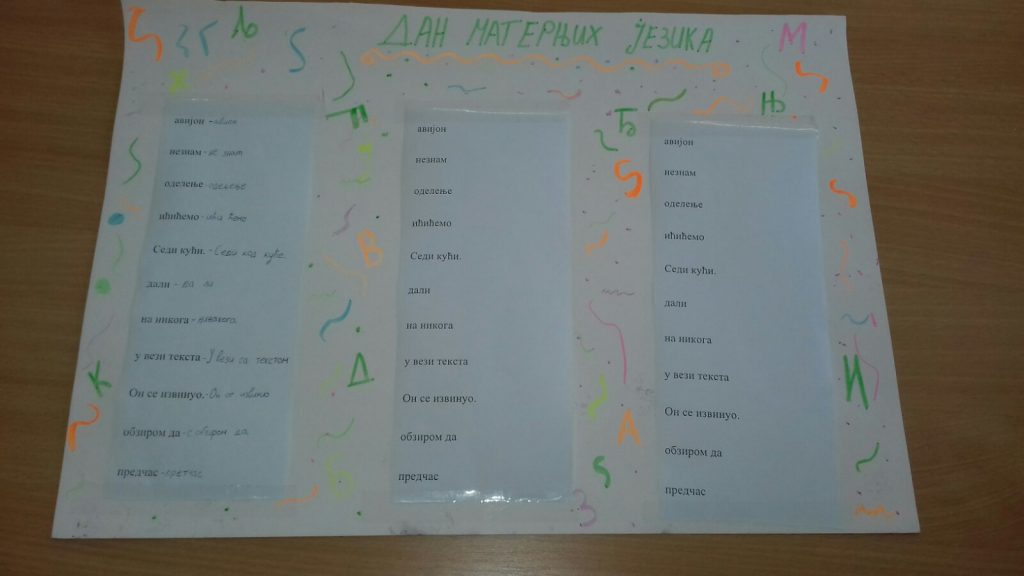 ДАН МАТЕРЊИХ ЈЕЗИКА
авијон - авион
незнам - не знам
оделење - одељење
ићићемо - ићи ћемо
Седи кући. - Седи код куће.
дали - да ли
на никога - ни на кога
у вези текста - У вези са текстом
Он се извинуо. - Он се извинио
обзиром да - с обзиром да
предчас - претчас
авијон
незнам
оделење
ићићемо
Седи кући.
дали
на никога
у вези текста
Он се извинуо.
обзиром да
предчас
авијон
незнам
оделење
ићићемо
Седи кући.
дали
на никога
у вези текста
Он се извинуо.
обзиром да
предчас